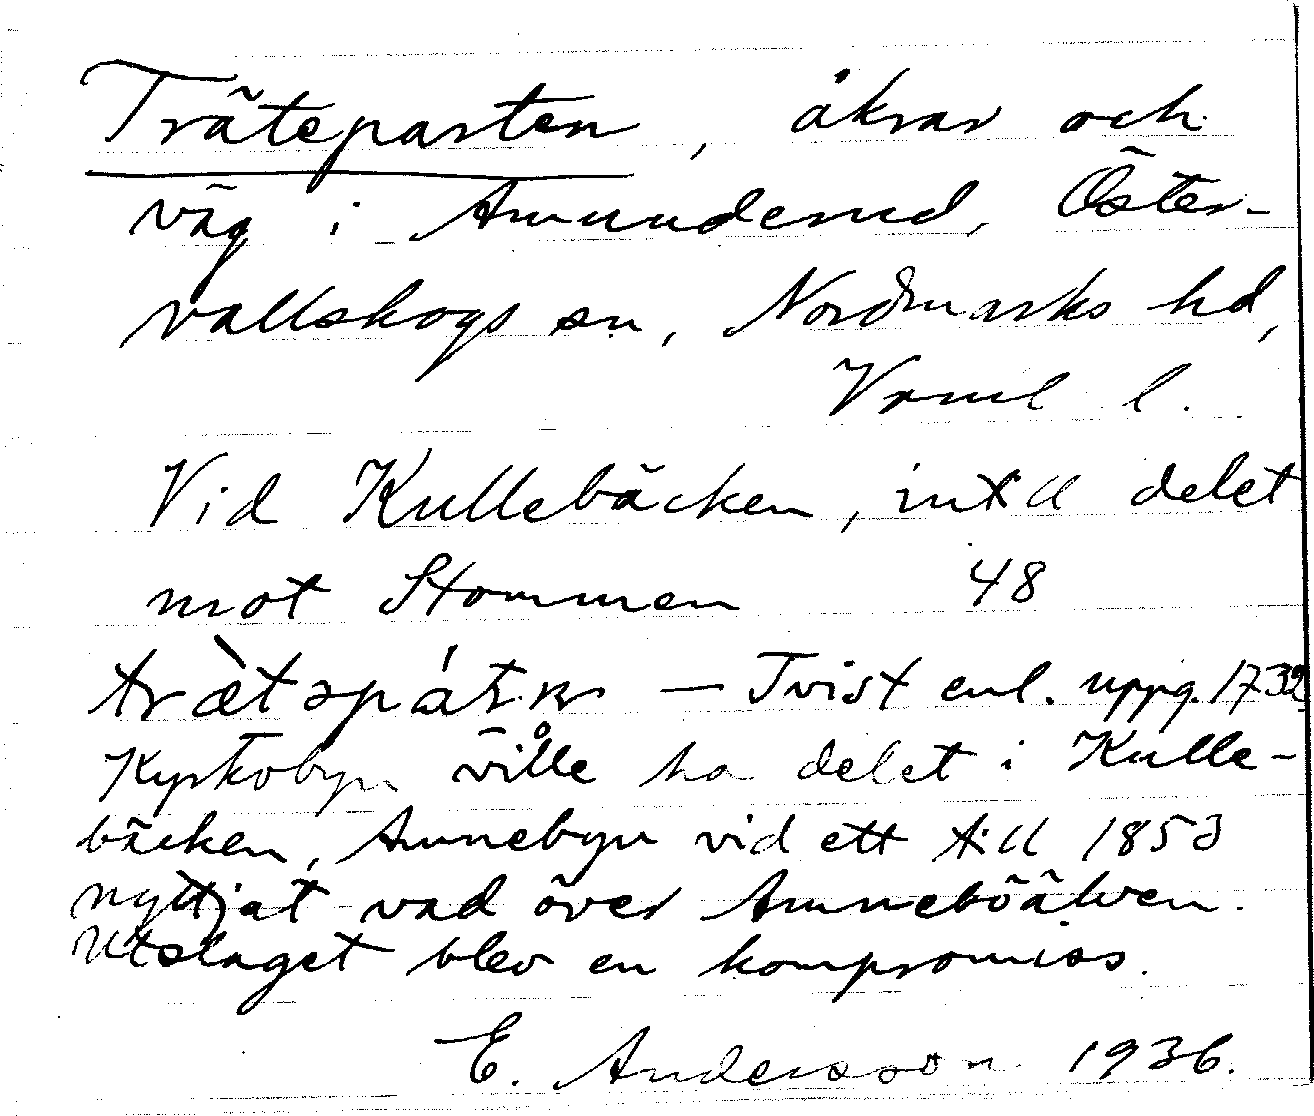 Träteparten, åkrar och
väg i Amunderud, Öster-
vallskogs sn, Nordmarks hd,
Vrml l.
Vid Kullebäcken, intill delet
mot Stommen 48
— Tvist enl. uppg. 1732
Kyrkobyn ville ha delet i Kulle-
bäcken, Amnebyn vid ett till 1853
nyttjat vad över Amneböälven.
Utslaget blev en kompromiss.
E. Andersson 1936.